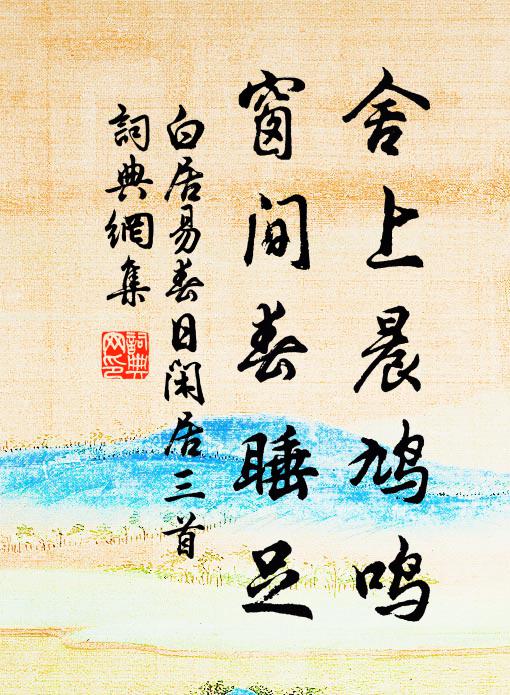 舍上晨鸠鸣
窗间春睡足
白居易春日闲居三首
詞典網集
詞典網印